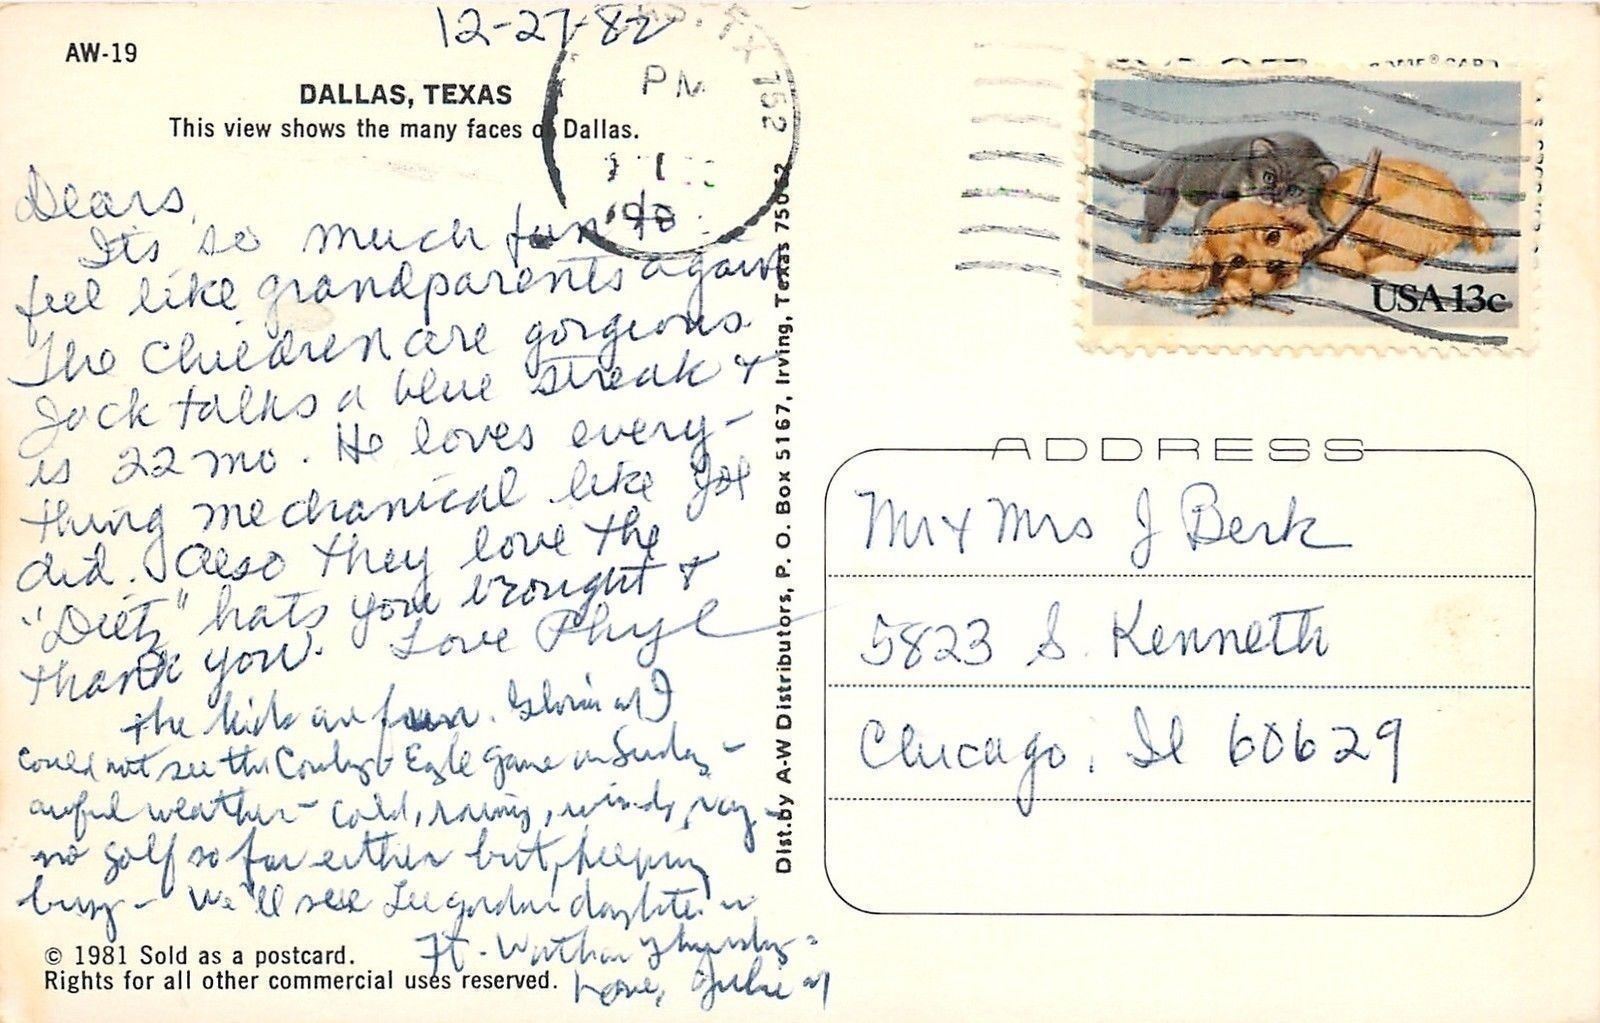 12-27-82
AW-19
DALLAS, TEXAS
This view shows the many faces of Dallas.
TX 752
PM
Dears,
It's so much fun to
feel like grandparents again
The Children are gorgeous
Jack talks a blue streak &
is 22 mo. He loves every-
thing mechanical like Joe
did. Also they love the
"Dietz" hats you brought &
thank you. Love Phyl
The kids are fun. Gloria & I
could not see the Cowboy Eagle game on Sunday -
awful weather - cold, raining, windy,
no golf so far either but keeping
busy - We'll see Lee Gordon daughter in
Ft. Worth on Thursday -
Love, Julie
© 1981 Sold as a postcard.
Rights for all other commercial uses reserved.
Dist. by A-W Distributors, P. O. Box 5167, Irving, Texas 75062
USA 13c
ADDRESS
Mr & Mrs J Berk
5823 S. Kenneth
Chicago, Il 60629